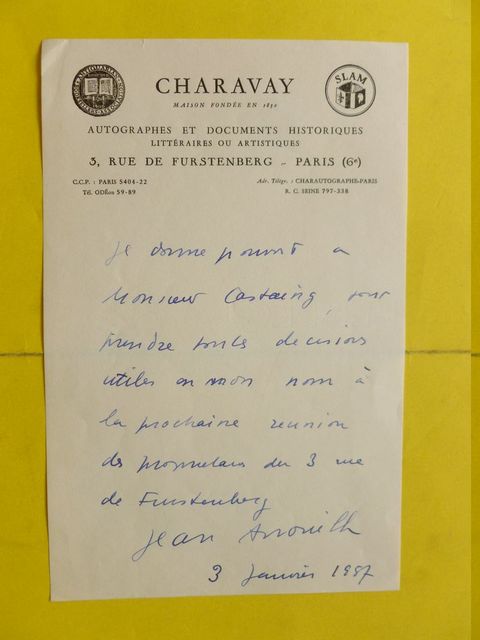 CHARAVAY
MAISON FONDÉE EN 1830
SLAM
AUTOGRAPHES ET DOCUMENTS HISTORIQUES
LITTÉRAIRES OU ARTISTIQUES
3, RUE DE FURSTENBERG - PARIS (6e)
C.C.P. : PARIS 5404-22
Tél. ODÉon 59-89
Adr. Télégr. : CHARAUTOGRAPHE-PARIS
R. C. SEINE 797-338
Je donne pouvoir a
Monsieur Castaing, pour
prendre toutes decisions
utiles en mon nom à
la prochaine reunion
des proprietaires du 3 rue
de Furstenberg
Jean Anouilh
3 Janvier 1987